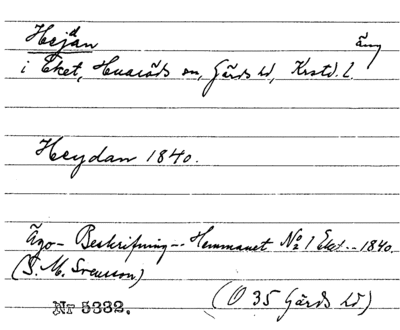 Hejdan äng
i Eket, Huaröds sn, Gärds hd, Krstd. l.
Heydan 1840.
Ägo-Beskrifning -- Hemmanet No 1 Eket -- 1840.
(S. M. Svensson)
(O 35 Gärds hd)
Nr 5332.